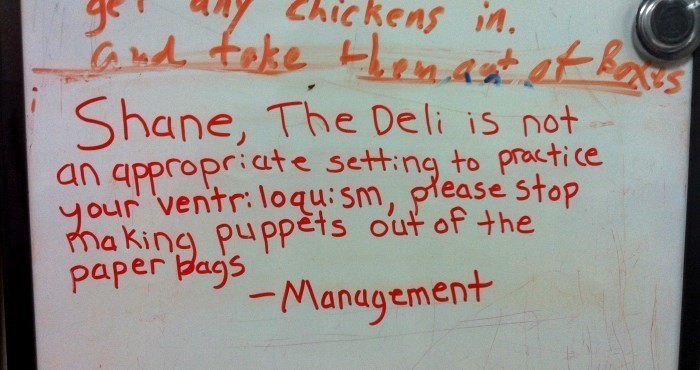 get any chickens in.
and take them out of Boxes
Shane, The Deli is not
an appropriate setting to practice
your ventriloquism, please stop
making puppets out of the
paper bags
-Management